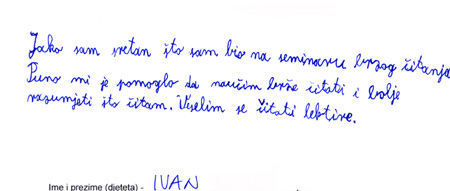 Jako sam sretan što sam bio na seminaru brzog čitanja
Puno mi je pomoglo da naučim brže čitati i bolje
razumjeti što čitam. Veselim se čitati lektire.
Ime i prezime (djeteta) - IVAN